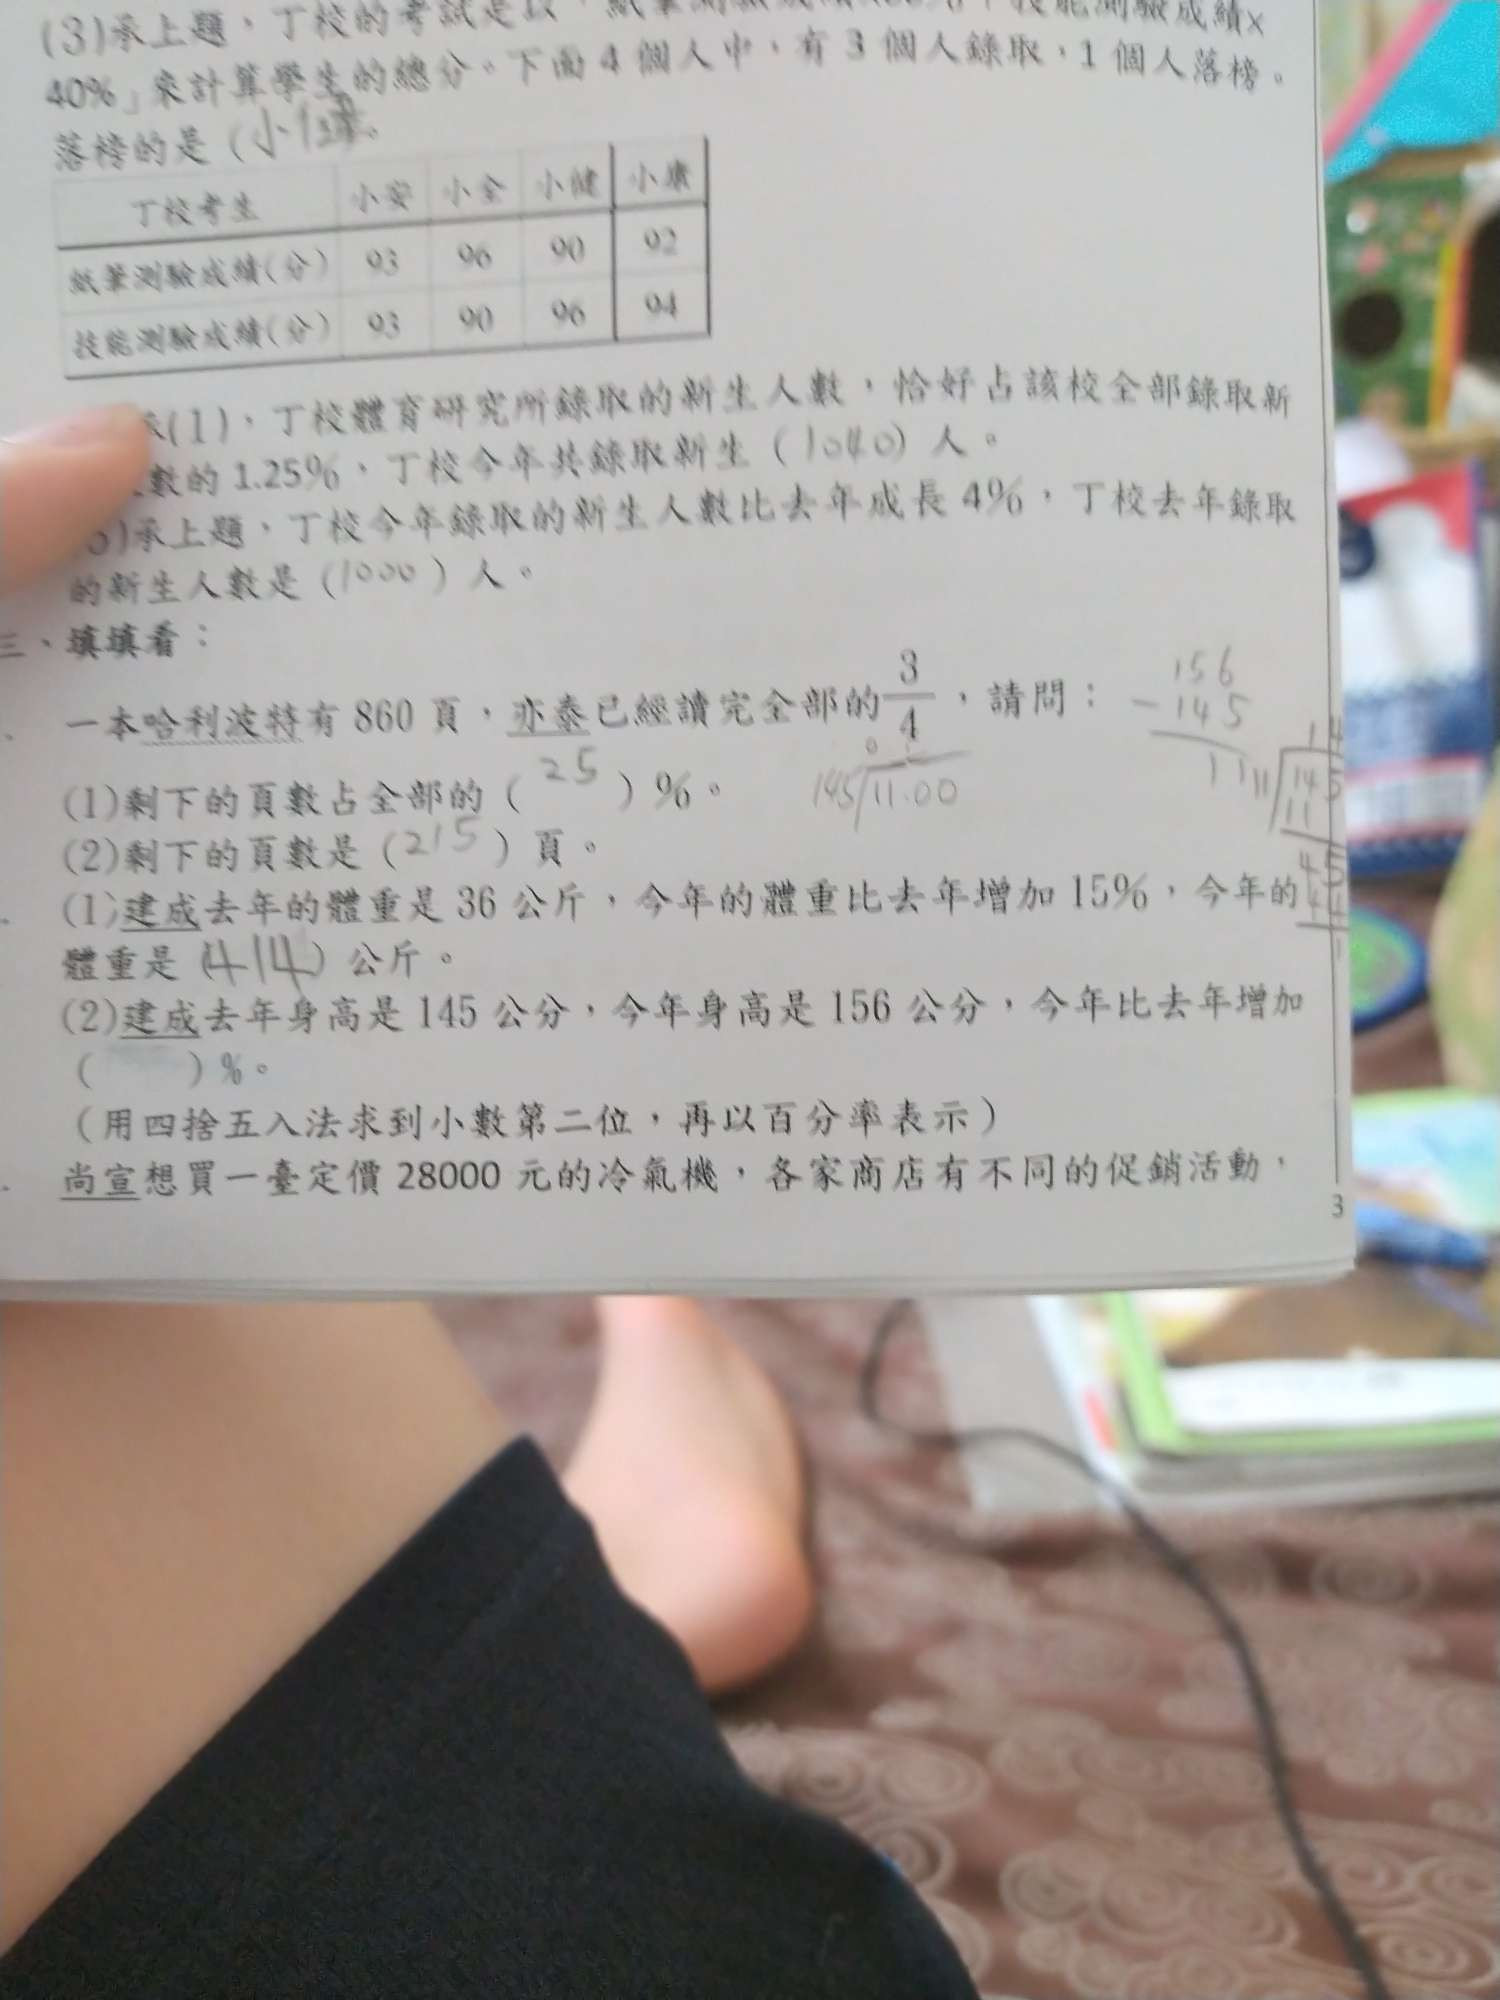 (3)承上題，丁校的考試是以「紙筆測驗成績×60%＋技能測驗成績×
40%」來計算學生的總分。下面 4 個人中，有 3 個人錄取，1 個人落榜。
落榜的是（小健
丁校考生 小安 小全 小健 小康
紙筆測驗成績(分) 93 96 90 92
技能測驗成績(分) 93 90 96 94
承(1)，丁校體育研究所錄取的新生人數，恰好占該校全部錄取新
數的 1.25%，丁校今年共錄取新生（1040）人。
)承上題，丁校今年錄取的新生人數比去年成長 4%，丁校去年錄取
的新生人數是（1000）人。
三、填填看：
一本哈利波特有 860 頁，亦泰已經讀完全部的 3/4，請問：
156
-145
11
145 11.00
14
11 145
11
45
44
1
(1)剩下的頁數占全部的（25）%。
(2)剩下的頁數是（215）頁。
(1)建成去年的體重是 36 公斤，今年的體重比去年增加 15%，今年的
體重是（414）公斤。
(2)建成去年身高是 145 公分，今年身高是 156 公分，今年比去年增加
（ ）%。
（用四捨五入法求到小數第二位，再以百分率表示）
尚宣想買一臺定價 28000 元的冷氣機，各家商店有不同的促銷活動，
3